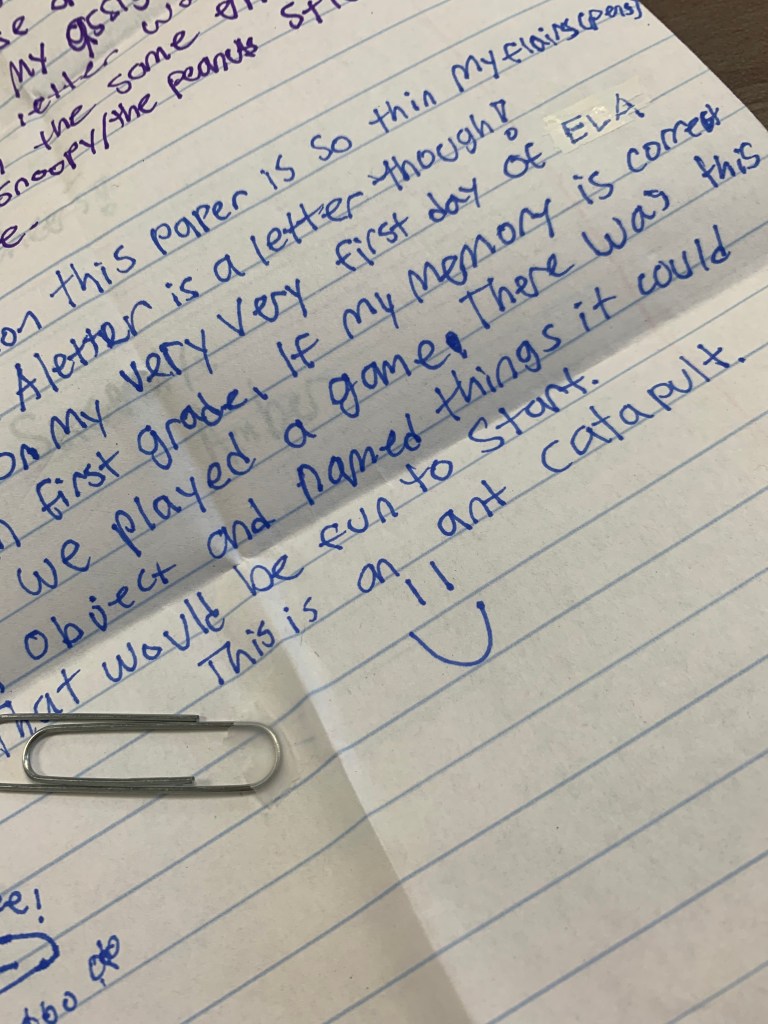 my
letter
the same
Snoopy/the peanuts
on this paper is so thin my flairs(pens)
A letter is a letter though!
on my very very first day of ELA
first grade. If my memory is correct
we played a game. There was this
object and named things it could
that would be fun to start.
This is an ant catapult.